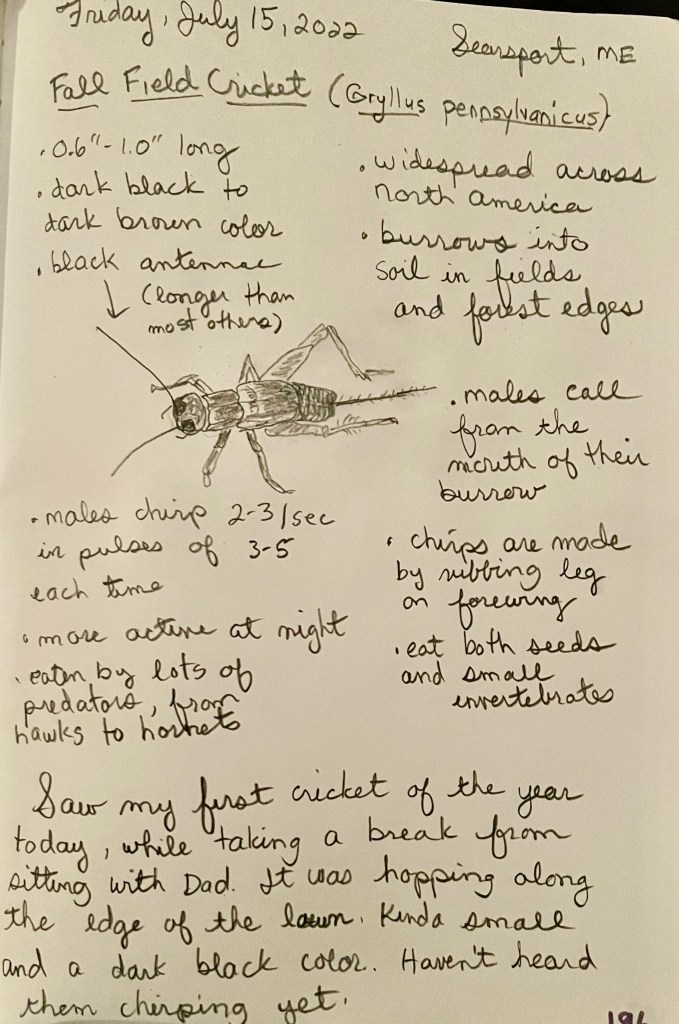 Friday, July 15, 2022
Searsport, ME
Fall Field Cricket (Gryllus pennsylvanicus)
· 0.6"-1.0" long
· dark black to
dark brown color
· black antennae
(longer than
most others)
· widespread across
north america
· burrows into
soil in fields
and forest edges
· males call
from the
mouth of their
burrow
· males chirp 2-3/sec
in pulses of 3-5
each time
· more active at night
· eaten by lots of
predators, from
hawks to hornets
· chirps are made
by rubbing leg
on forewing
· eat both seeds
and small
invertebrates
Saw my first cricket of the year
today, while taking a break from
sitting with Dad. It was hopping along
the edge of the lawn. Kinda small
and a dark black color. Haven't heard
them chirping yet.